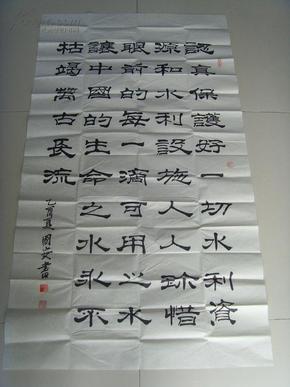 認真保護好一切水利資
源和水利設施人人珍惜
眼前的每一滴可用之水
讓中國的生命之水永不
枯竭萬古長流
乙酉夏國書